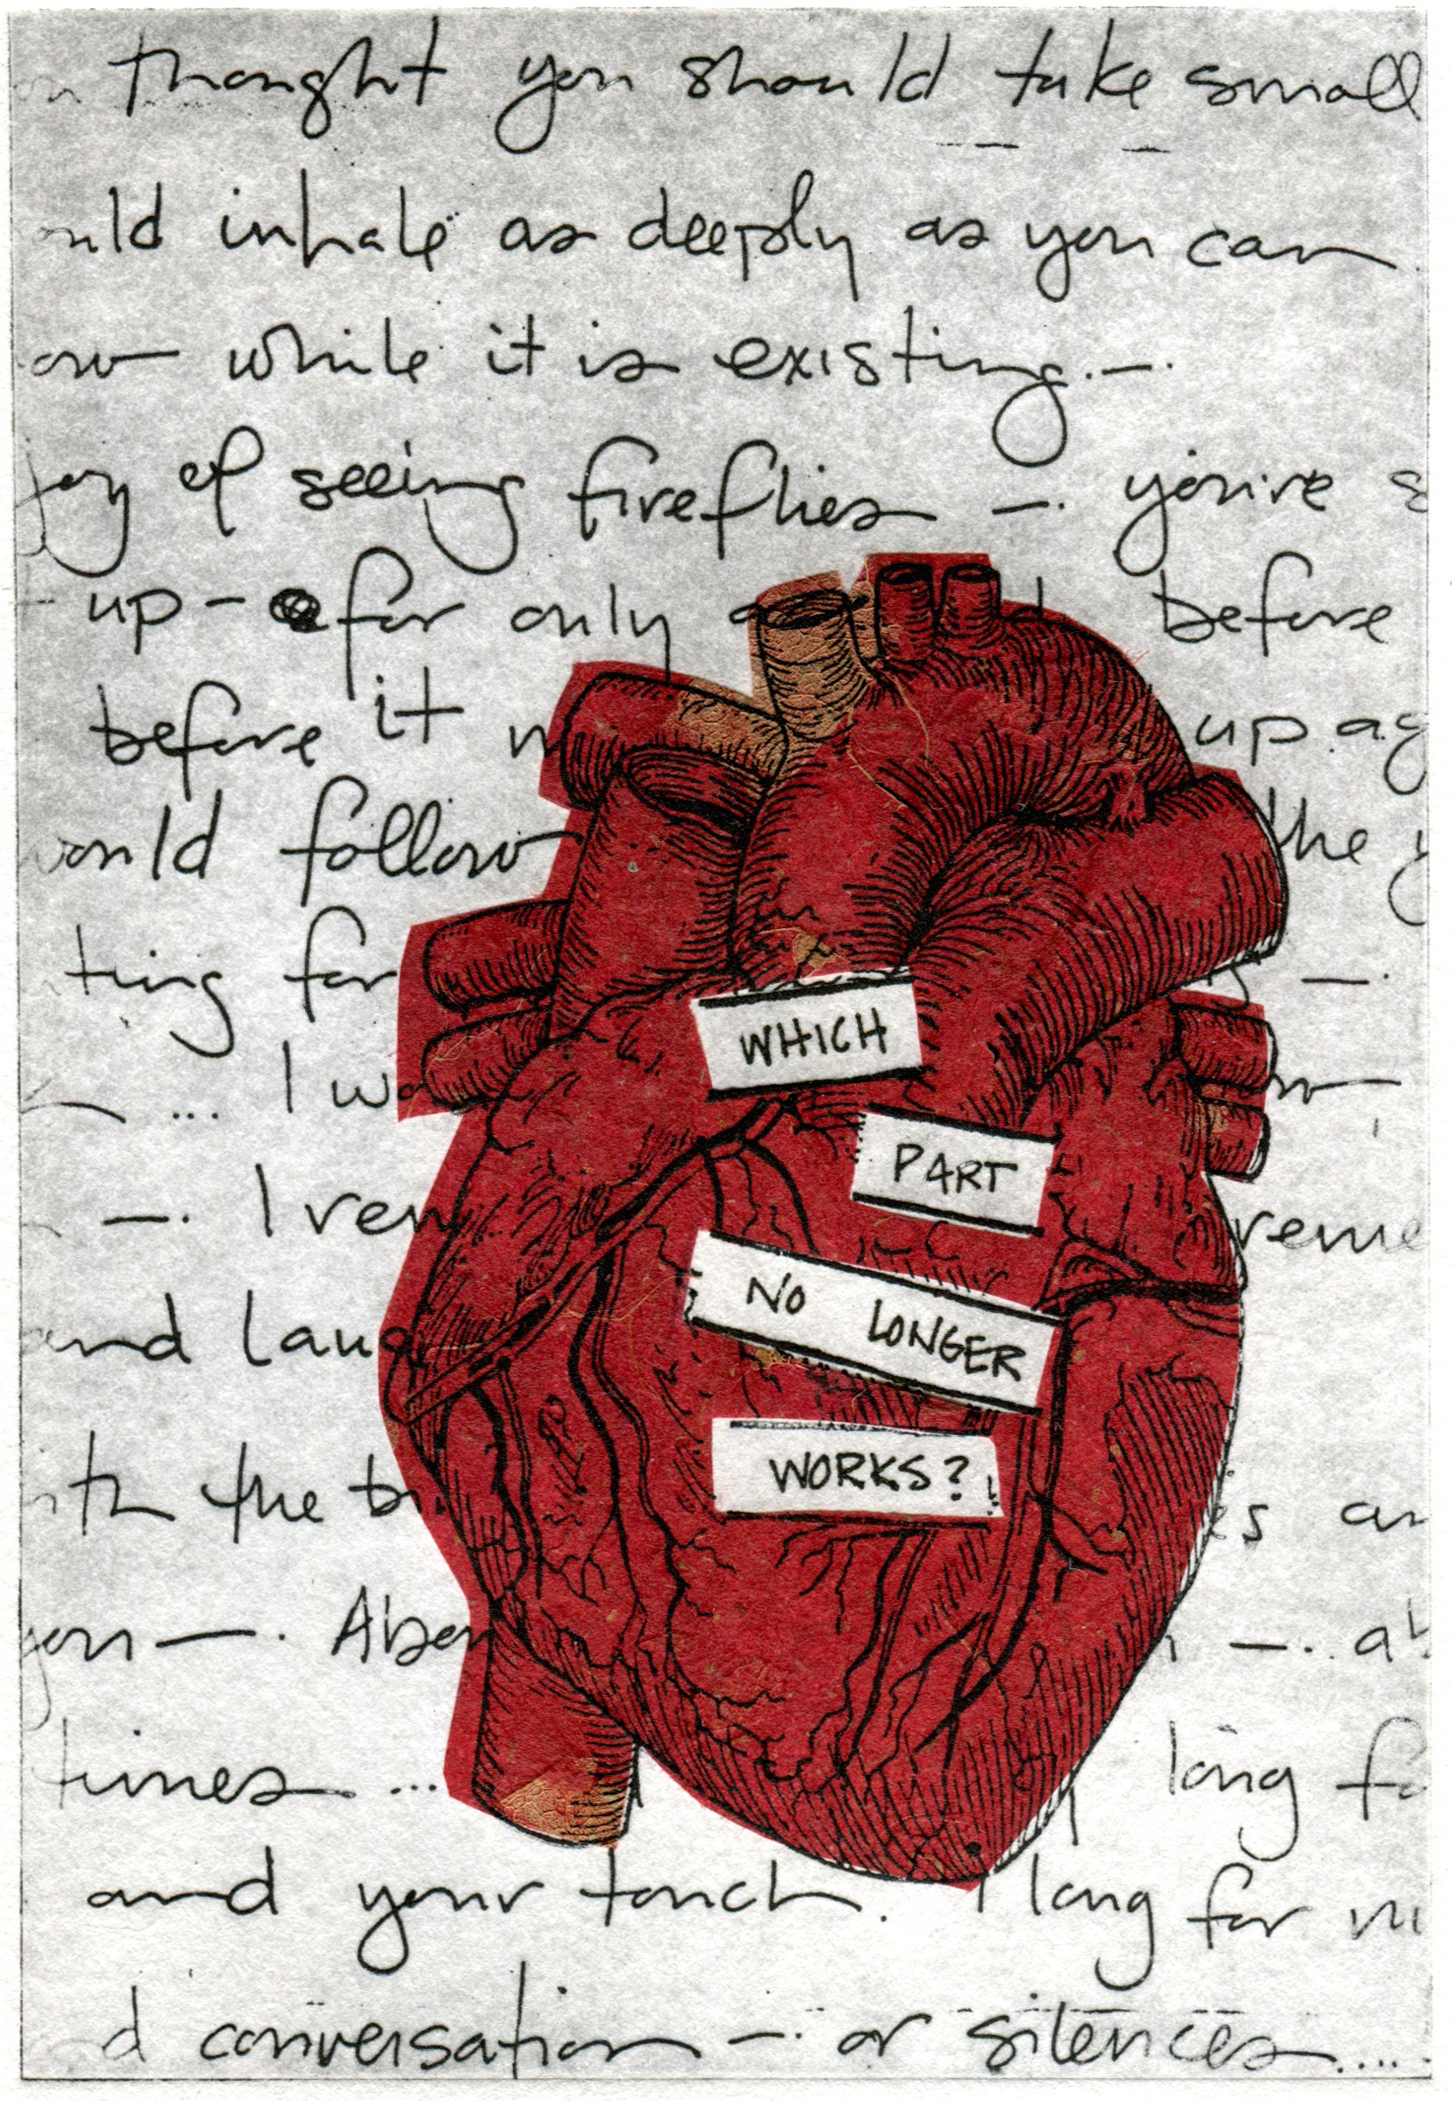 thought you should take small
uld inhale as deeply as you can
ow while it is existing.—.
joy of seeing fireflies —. you're s
up - for only a before
before it up. ag
would follow the y
ting for —.
... I wa
—. I rem reme
and laug
ith the b es an
you —. Aben —. ab
times ... long fo
and your touch. I long for m
d conversation —. or silences.....
WHICH
PART
NO LONGER
WORKS?